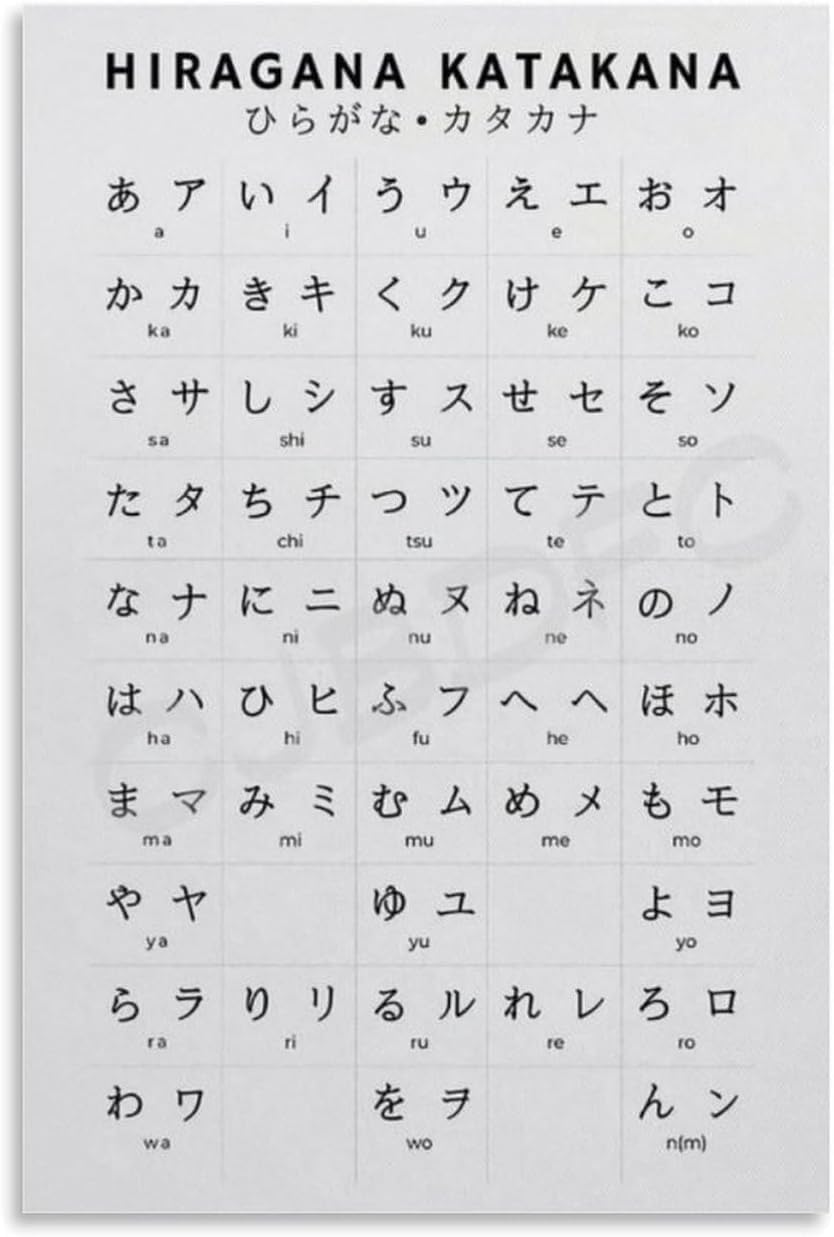 HIRAGANA KATAKANA
ひらがな・カタカナ
あ ア い イ う ウ え エ お オ
a i u e o
か カ き キ く ク け ケ こ コ
ka ki ku ke ko
さ サ し シ す ス せ セ そ ソ
sa shi su se so
た タ ち チ つ ツ て テ と ト
ta chi tsu te to
な ナ に ニ ぬ ヌ ね ネ の ノ
na ni nu ne no
は ハ ひ ヒ ふ フ へ ヘ ほ ホ
ha hi fu he ho
ま マ み ミ む ム め メ も モ
ma mi mu me mo
や ヤ ゆ ユ よ ヨ
ya yu yo
ら ラ り リ る ル れ レ ろ ロ
ra ri ru re ro
わ ワ を ヲ ん ン
wa wo n(m)
CJBDFC